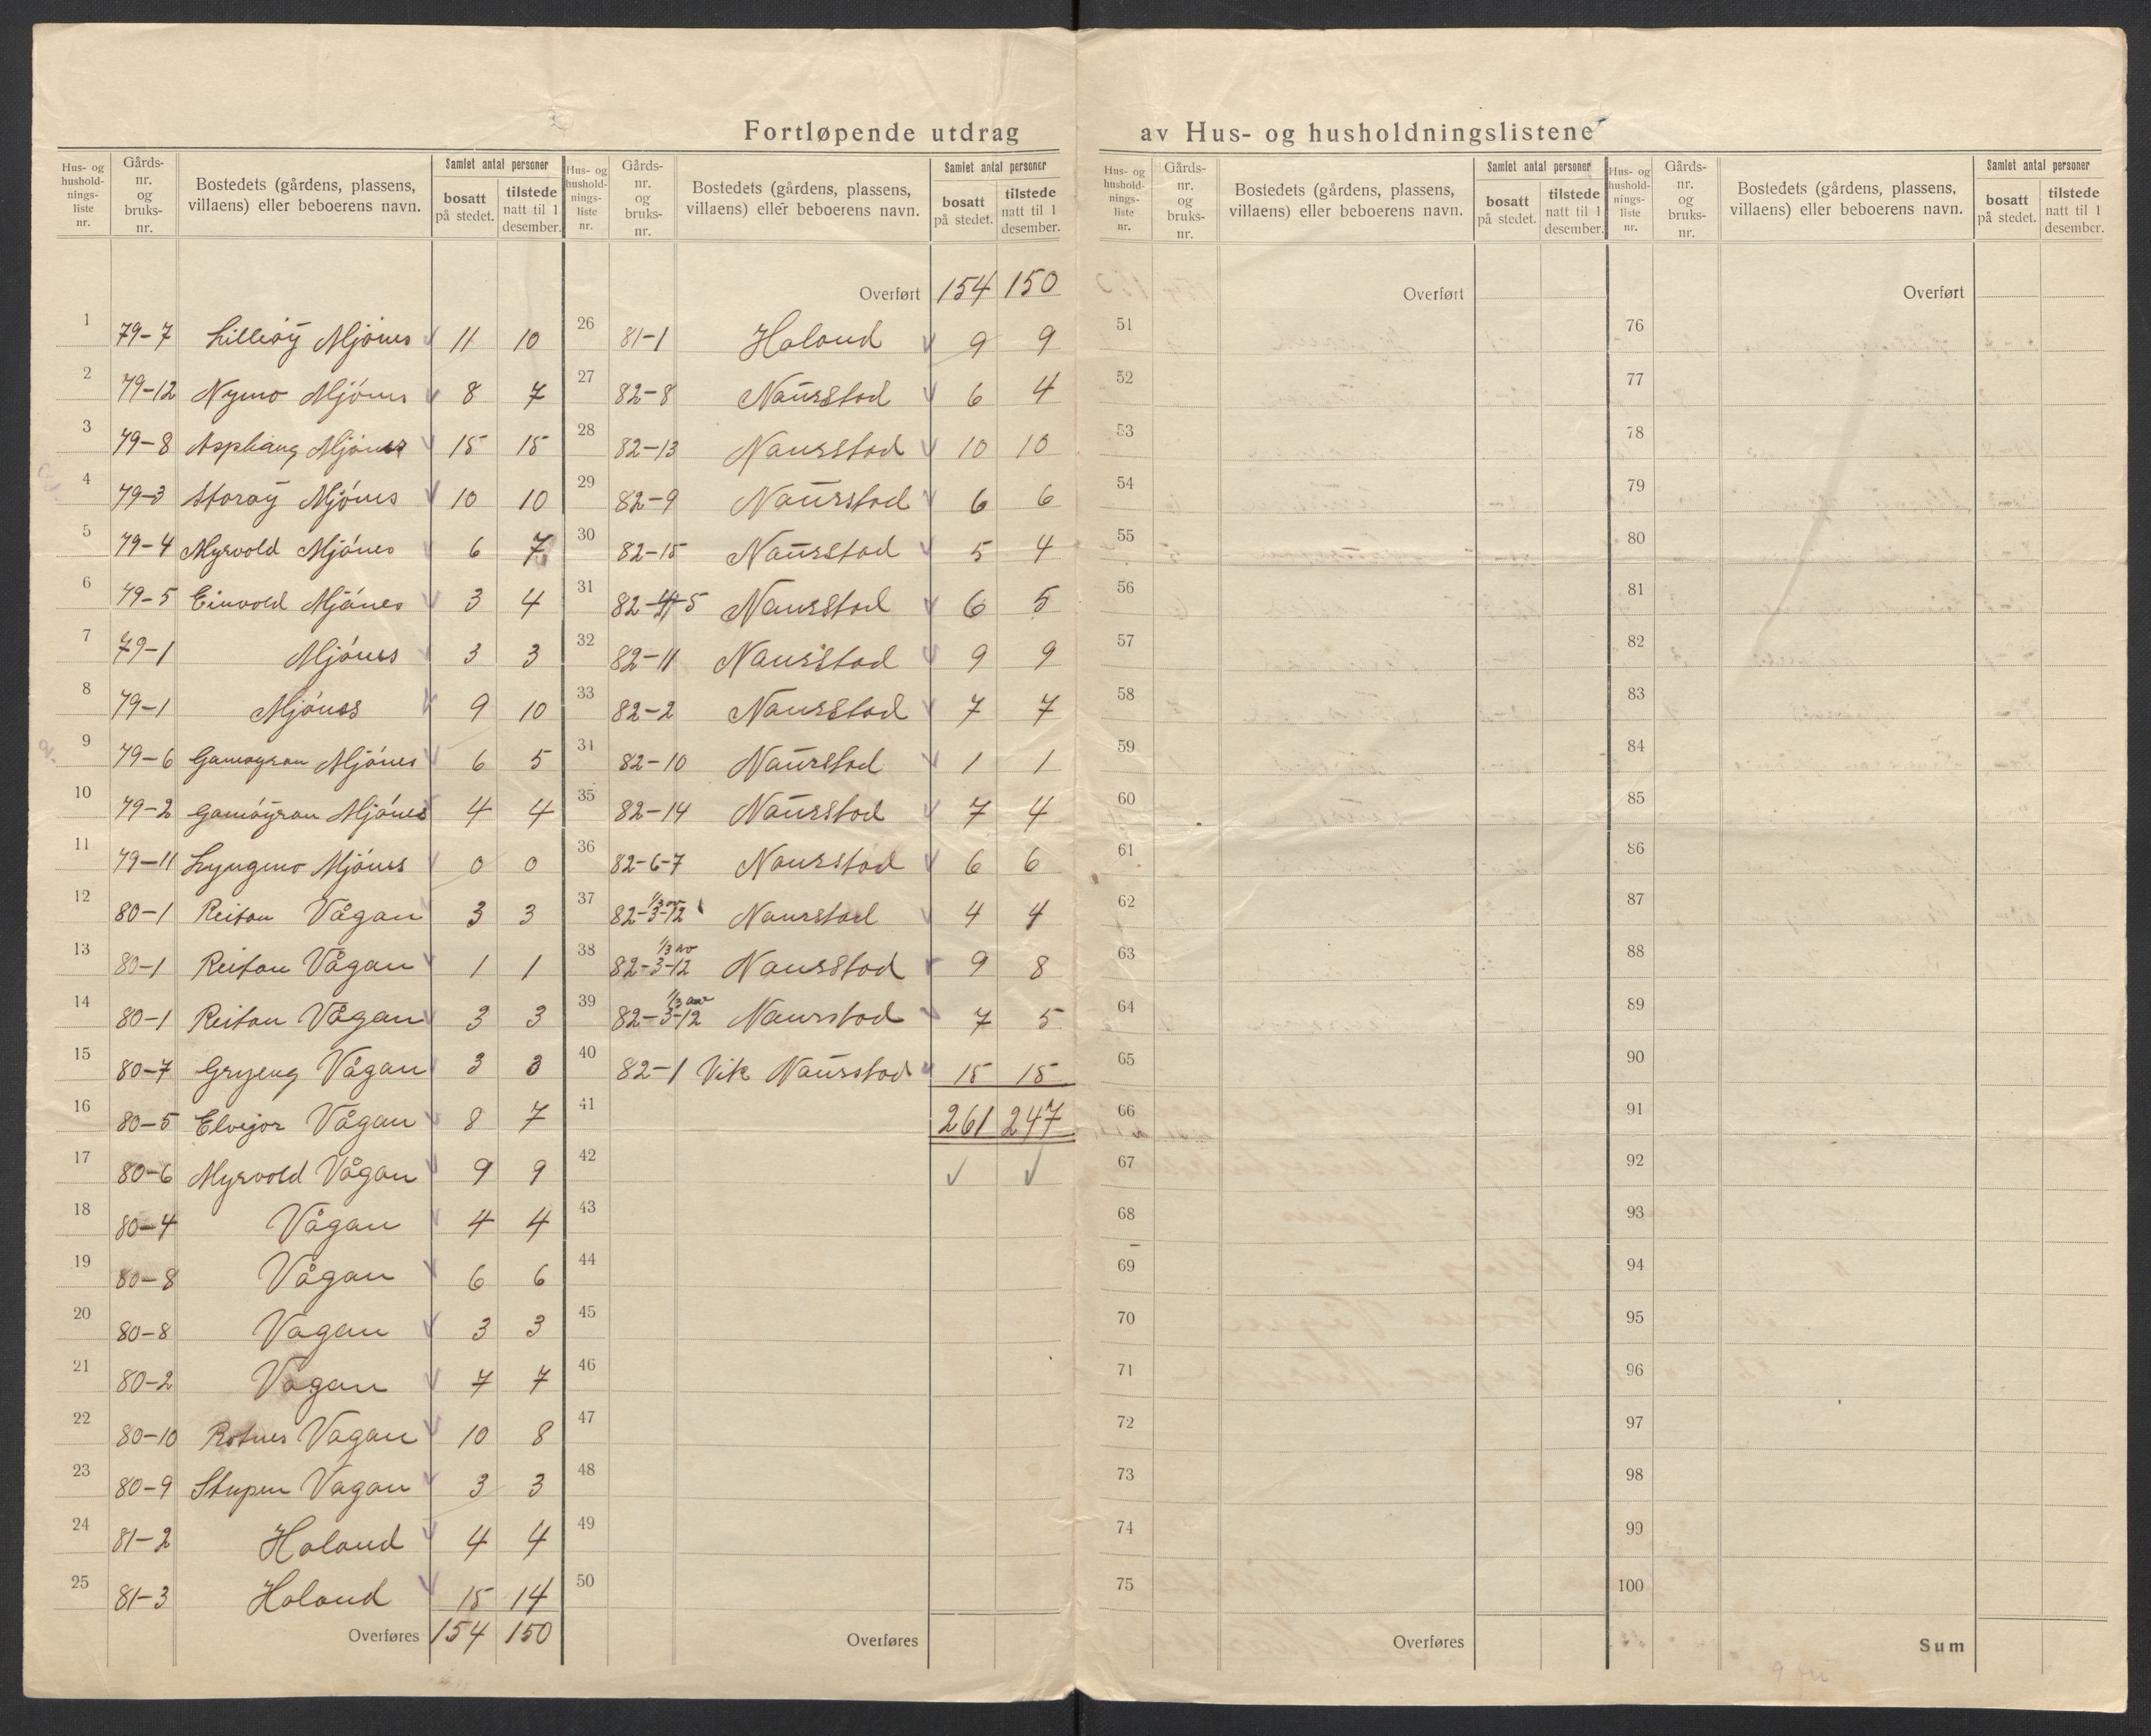 Fortløpende utdrag av Hus- og husholdningslistene
Hus- og husholdningsliste nr. | Gårdsnr. og bruksnr. | Bostedets (gårdens, plassens, villaens) eller beboerens navn. | Samlet antal personer | bosatt på stedet. | tilstede natt til 1 desember.
1 79-7 Lilleöy Mjönes 11 10
2 79-12 Nymo Mjönes 8 7
3 79-8 Asphaug Mjönes 15 15
4 79-3 Storöy Mjönes 10 10
5 79-4 Myrvold Mjönes 6 7
6 79-5 Einvold Mjönes 3 4
7 79-1 Mjönes 3 3
8 79-1 Mjönes 9 10
9 79-6 Gamöyran Mjönes 6 5
10 79-2 Gamöyran Mjönes 4 4
11 79-11 Lyngmo Mjönes 0 0
12 80-1 Reitan Vågan 3 3
13 80-1 Reitan Vågan 1 1
14 80-1 Reitan Vågan 3 3
15 80-7 Gryeng Vågan 3 3
16 80-5 Elvejor Vågan 8 7
17 80-6 Myrvold Vågan 9 9
18 80-4 Vågan 4 4
19 80-8 Vågan 6 6
20 80-8 Vagan 3 3
21 80-2 Vagan 7 7
22 80-10 Rotnes Vagan 10 8
23 80-9 Stupen Vagan 3 3
24 81-2 Haland 4 4
25 81-3 Haland 15 14
Overføres 154 150
Hus- og husholdningsliste nr. | Gårdsnr. og bruksnr. | Bostedets (gårdens, plassens, villaens) eller beboerens navn. | Samlet antal personer | bosatt på stedet. | tilstede natt til 1 desember.
Overført 154 150
26 81-1 Haland 9 9
27 82-8 Naurstad 6 4
28 82-13 Naurstad 10 10
29 82-9 Naurstad 6 6
30 82-15 Naurstad 5 4
31 82-4-5 Naurstad 6 5
32 82-11 Naurstad 9 9
33 82-2 Naurstad 7 7
34 82-10 Naurstad 1 1
35 82-14 Naurstad 7 4
36 82-6-7 Naurstad 6 6
37 82-3-12 1/3 av Naurstad 4 4
38 82-3-12 1/3 av Naurstad 9 8
39 82-3-12 1/3 av Naurstad 7 5
40 82-1 Vik Naurstad 15 15
41 261 247
42
43
44
45
46
47
48
49
50
Overføres
Hus- og husholdningsliste nr. | Gårdsnr. og bruksnr. | Bostedets (gårdens, plassens, villaens) eller beboerens navn. | Samlet antal personer | bosatt på stedet. | tilstede natt til 1 desember.
Overført
51
52
53
54
55
56
57
58
59
60
61
62
63
64
65
66
67
68
69
70
71
72
73
74
75
Overføres
Hus- og husholdningsliste nr. | Gårdsnr. og bruksnr. | Bostedets (gårdens, plassens, villaens) eller beboerens navn. | Samlet antal personer | bosatt på stedet. | tilstede natt til 1 desember.
Overført
76
77
78
79
80
81
82
83
84
85
86
87
88
89
90
91
92
93
94
95
96
97
98
99
100
Sum